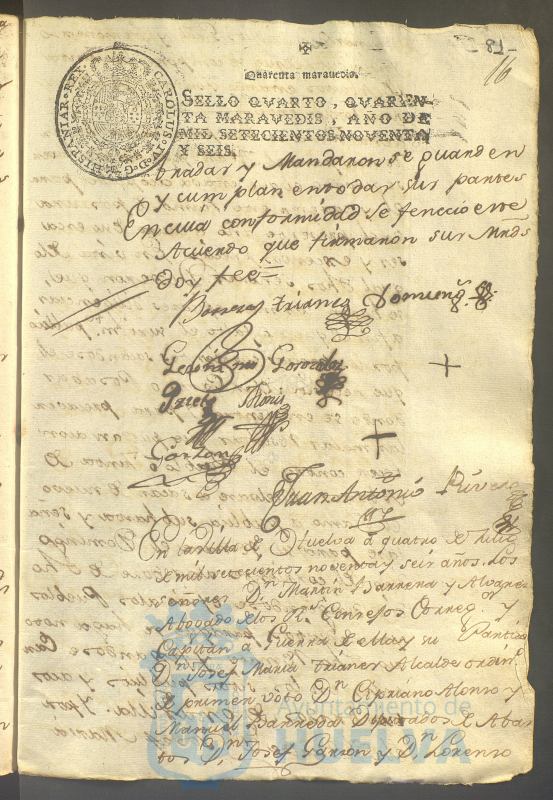 81
16
Quarenta maravedis.
CAROLUS IV D G HISPANIAR REX
SELLO QVARTO, QVAREN-
TA MARAVEDIS, AÑO DE
MIL SETECIENTOS NOVENTA
Y SEIS.
bradar y Mandaron se guarden
y cumplan en todas sus partes
En cuia conformidad se fenecio este
Acuerdo que firmaron sus Mrds
Doy fee
Barrera Trianes Domeng.
Geronimo Gonzalez
Garzon
Juan Antonio Rivera
En la villa de Huelva à quatro de Julio
de mil setecientos noventa y seis años. Los
señores Dn Martin Barrera y Alvarez
Abogado de los Rs. Consejos Correg.or y
Capitan à Guerra de ella y su Partido
Dn Josef Maria Trianes Alcalde ordin.
de primer voto Dn Cipriano Alonso y
Manuel Barreda Diputados de Abas
tos Dn Josef Garzon y Dn Lorenzo
Ayuntamiento de
HUELVA